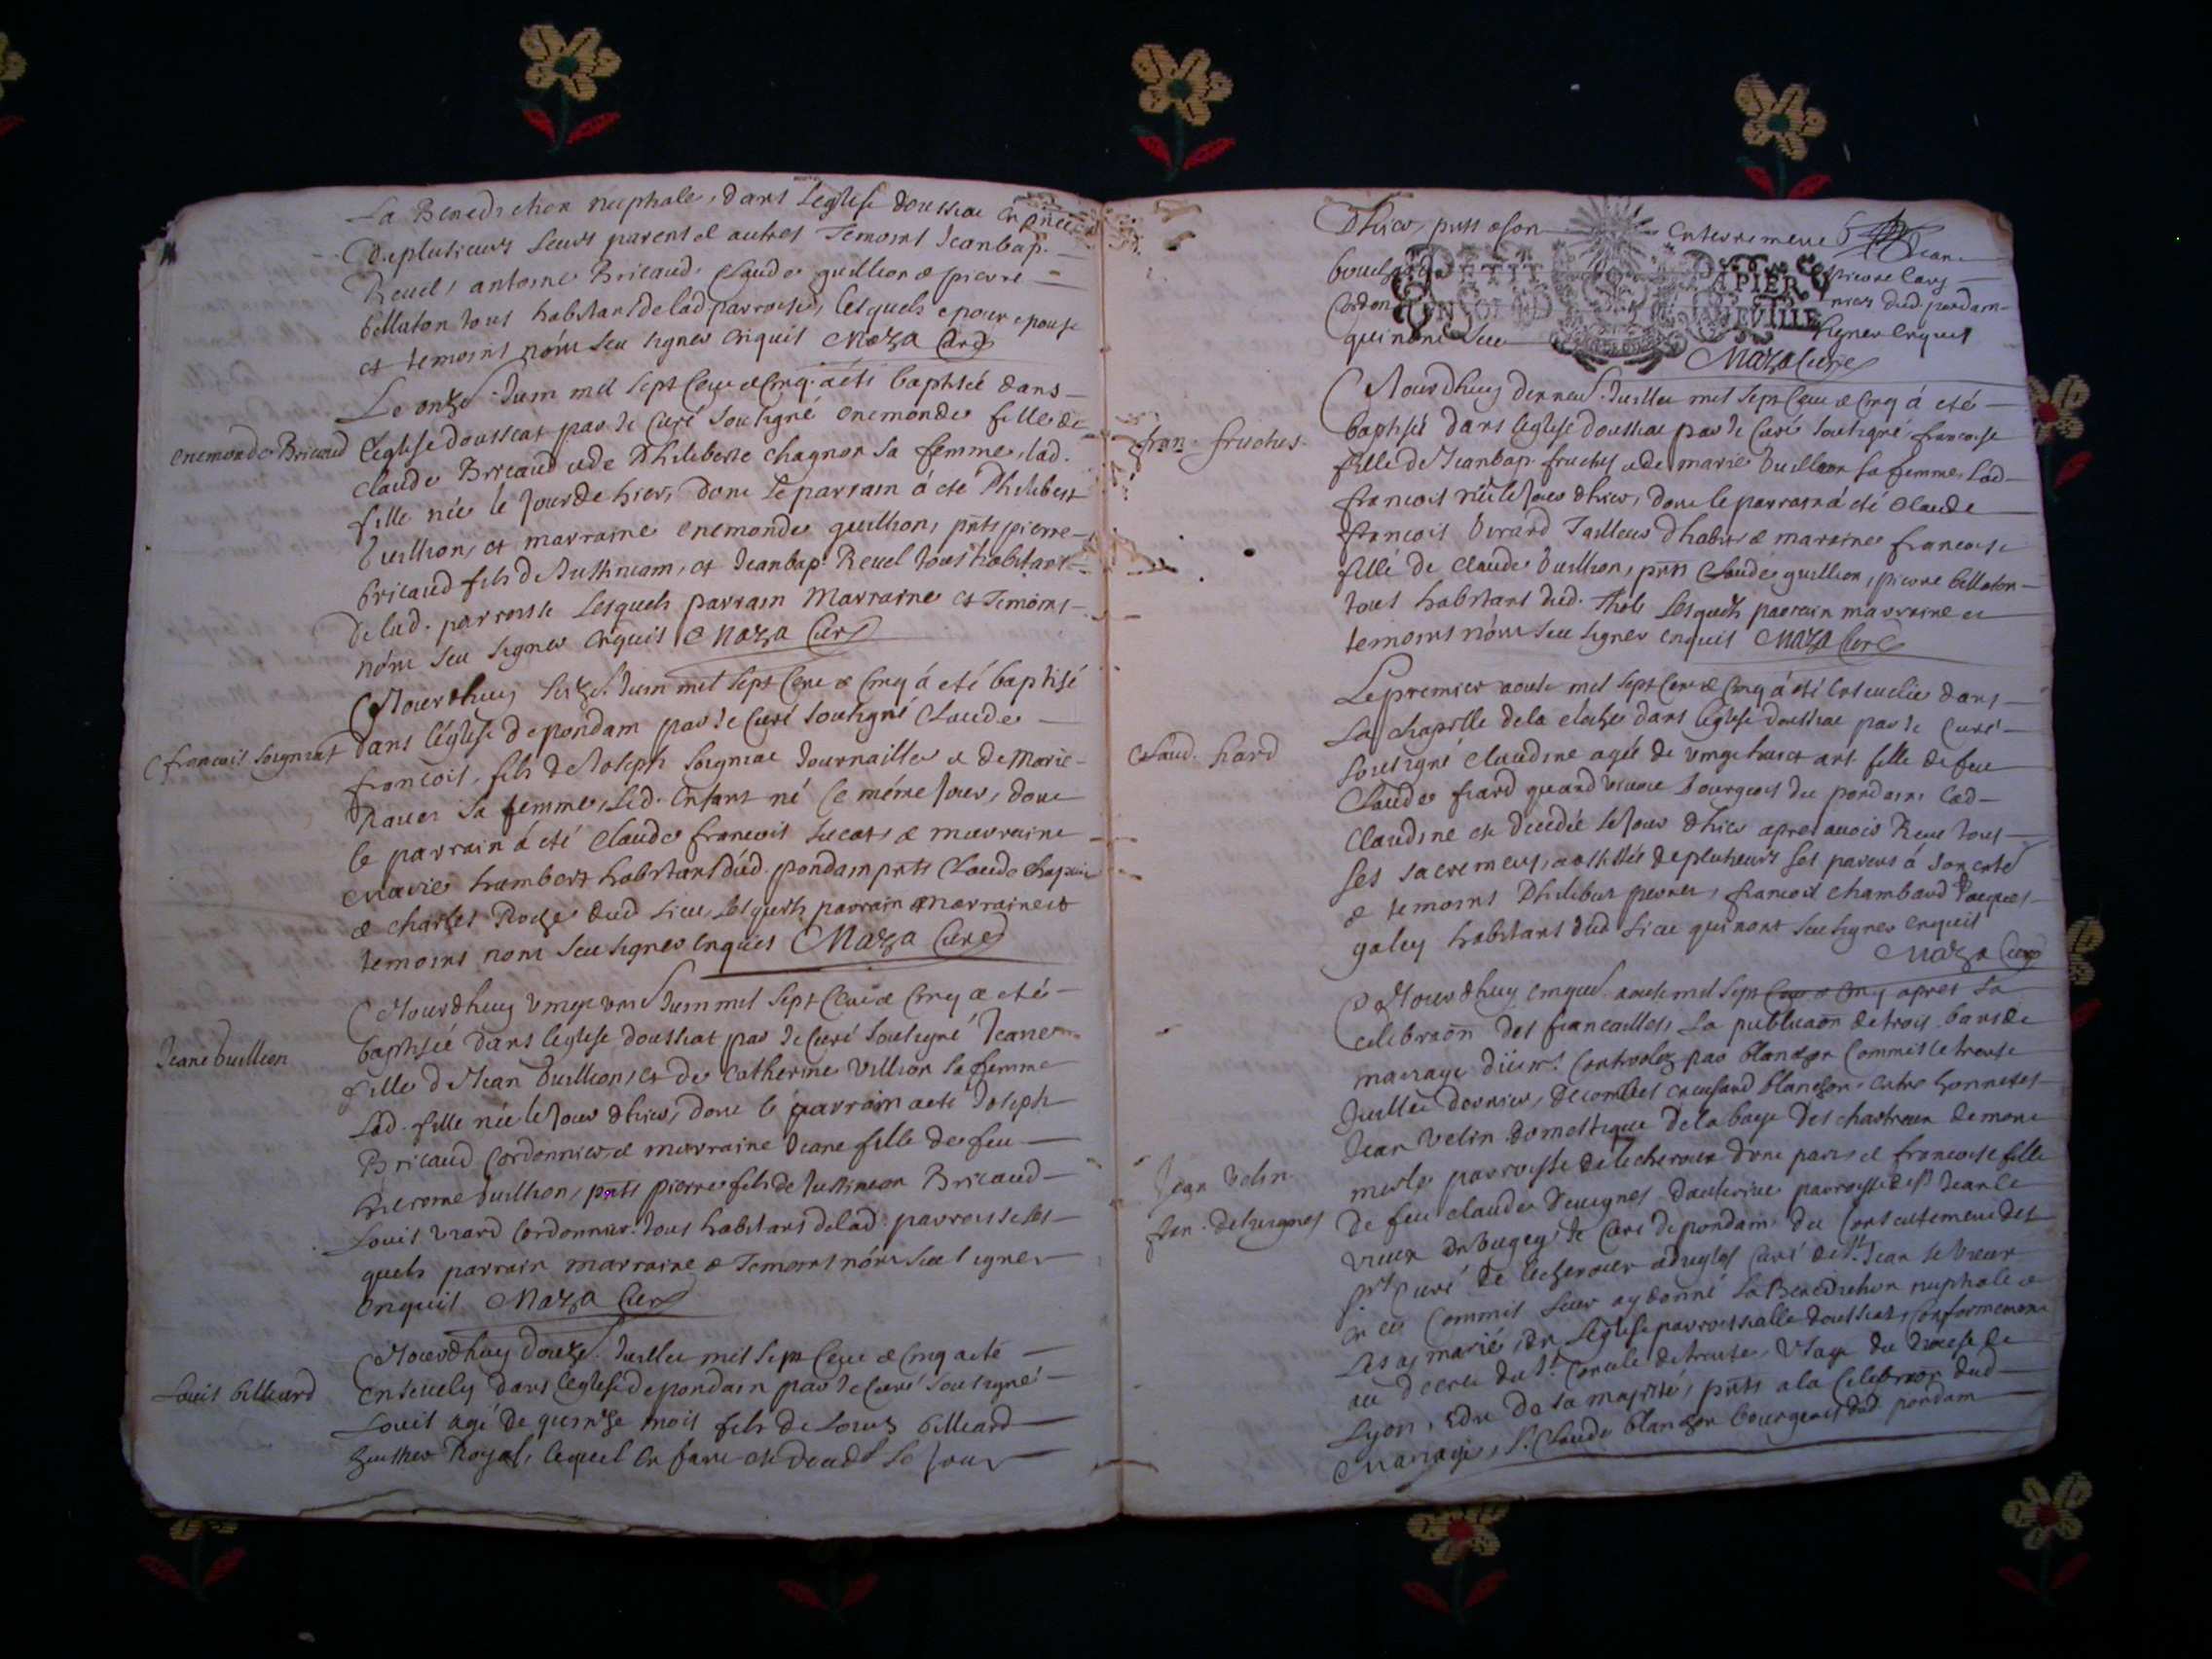 La Benediction nuptiale, dans leglise doussiat en pnce
de plusieurs leurs parens et autres Temoins Jeanbap.
Reuel, antoine Bricaud, Claude guillion & pierre
bellaton tous habitans de lad parroisse, lesquels epoux epouse
et temoins n'ont sceu signer enquis Maza Curé
Le onze Juin mil sept Cent & Cinq a été baptisée dans
enemonde Bricaud
l'eglise doussiat par Je Curé soussigné enemonde fille de
Claude Bricaud et de Philiberte Chagnon sa femme, lad.
fille née le Jour de hier, dont le parrain a été Philibert
Vuillion, et marraine enemonde guillion, pnts pierre
bricaud fils de Justiniam, et Jeanbap. Reuel tous habitans
de lad. parroisse Lesquels parrain Marraine et Temoins
n'ont sceu signer enquis Maza Curé
Aujourdhuy seize Juin mil sept Cent & Cinq á eté baptisé
francois soigniat
dans l'église de pondain par Je Curé soussigné Claude
francois, fils de Joseph soigniat Journaillier & de Marie
sa femme, led. Enfant né ce même Jour, dont
le parrain á eté Claude francois & marraine
Marie humbert habitans dud. pondain pnts Claude
& Charles Roche dud Lieu, lesquels parrain marraine et
temoins nont sceu signer enquis Maza Curé
Aujourdhuy vingt vn Juin mil sept Cent & Cinq a eté
Jeane Vuillion
baptisée dans leglise doussiat par Je Curé soussigné Jeane
fille de Jean Vuillion, et de Catherine Villion sa femme
Lad. fille née le Jour dhier, dont le parrain a eté Joseph
Bricaud Cordonnier & marraine Jeane fille de feu
hierome Vuillion, pnts pierre fils de Justinian Bricaud
Louis Vrard Cordonnier. tous habitans de lad. parroisse les
quels parrain marraine & Temoins n'ont sceu signer
enquis Maza Curé
Aujourdhuy douze. Juillet mil sept Cent & Cinq a eté
Louis billiard
enseuely dans leglise de pondain par Je Curé soussigné
Louis agé de quinze mois fils de Louis billiard
huissier Royal, lequel enfant est decedé le Jour
Dhier, pnts a son enterrement Jean
pierre
Cordon nier dud. pondain
qui nont sceu signer enquis
PETIT PAPIER
Maza Curé
Aujourdhuy dernier Juillet mil sept Cent & Cinq á eté
fran. fruchet
baptisée dans leglise doussiat par Je Curé soussigné francoise
fille de Jeanbap. fruchet & de marie Vuillion sa femme. Lad
francoise née le Jour dhier, dont le parrain á eté Claude
francois Vvrard Tailleur dhabits & maraine francoise
fille de Claude Vuillion, pnts Claude guillion, pierre bellaton
tous habitans dud. Lesquels parrain marraine et
temoins n'ont sceu signer enquis Maza Curé
Le premier aoust mil sept Cent & Cinq á eté enseuelie dans
Claud. hard
La Chapelle de la cloche dans leglise doussiat par Je Curé
soussigné Claudine agée de vingt huict ans fille de feu
Claude quand viuoit bourgeois du pondain. Lad
Claudine est decedée le Jour dhier apres auoir Receu tous
ses sacremens, assistée de plusieurs ses parens á son enterrement
& temoins Philibert francois Chambard Jacques
galley habitans dud Lieu qui nont sceu signer enquis
Maza Curé
Aujourdhuy cinquie. aoust mil sept Cent & Cinq apres la
celebraõn des fiancailles, la publicaõn de trois bans de
mariage par blanchon Commis le trente
Juillet dernier, blanchon. entre honnetes
Jean Velin
Jean Velin domestique des chartreux de mont
merle parroisse de Lescheroux dune part & francoise fille
fran. deluignes
de feu Claude dautre parroisse de St Jean le
vieux en bugey, Je Curé de pondain du Consentement des
Srs Curé de Lescheroux & Curé de St. Jean le vieux
Commis leur ay donné la Benediction nuptiale &
Les ay mariés, en l'eglise parroissialle doussiat, Conformement
au decret du St. Concile de trente, Vsage du diocese de
Lyon, Edit de sa majesté, pnts a la Celebraõn dud
Mariage, Sr. Claude blanchon bourgeois dud pondain